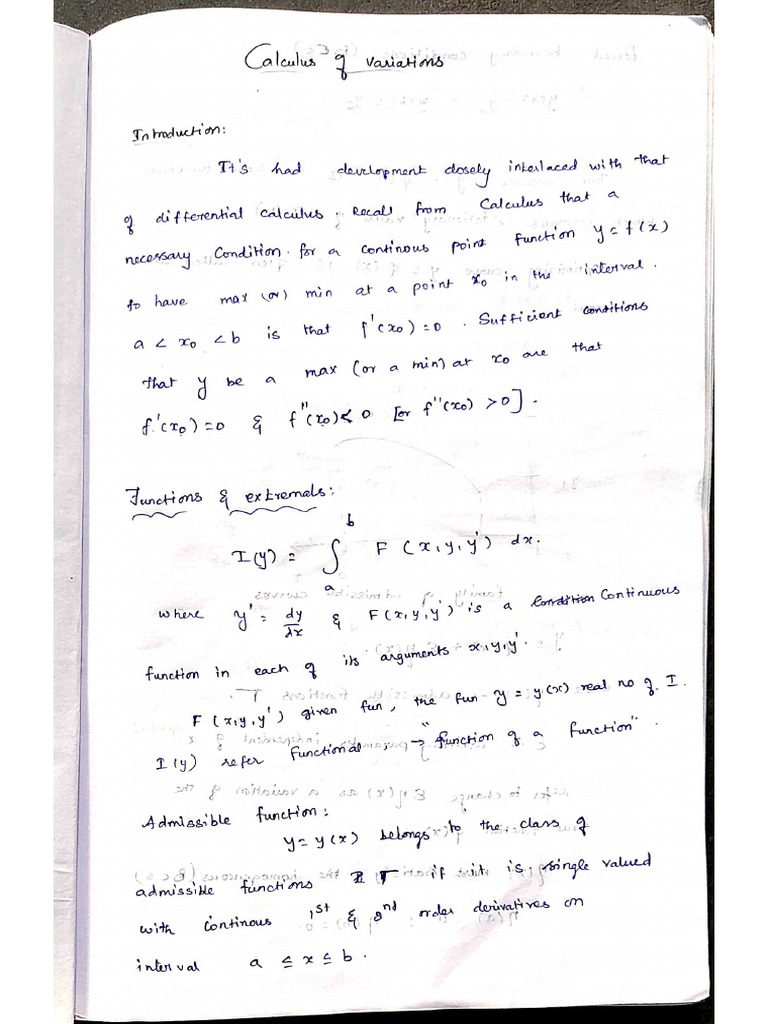 Calculus of variations
Introduction:
It's had development closely interlaced with that
of differential calculus. Recall from Calculus that a
necessary Condition for a continous point function y = f(x)
to have max (or) min at a point x₀ in the interval.
a < x₀ < b is that f'(x₀) = 0. Sufficient conditions
that y be a max (or a min) at x₀ are that
f'(x₀) = 0 & f''(x₀) < 0 [or f''(x₀) > 0].
Functions & extremals:
I(y) = ∫ₐᵇ F (x, y, y') dx.
where y' = dy/dx & F(x, y, y') is a Continuous
function in each of its arguments x, y, y'.
F (x, y, y') given fun, the fun y = y(x) real no of I.
I(y) refer functional → "function of a function".
Admissible function:
y = y(x) belongs to the class of
admissible functions if it is, single valued
with continous 1st & 2nd order derivatives on
interval a ≤ x ≤ b.